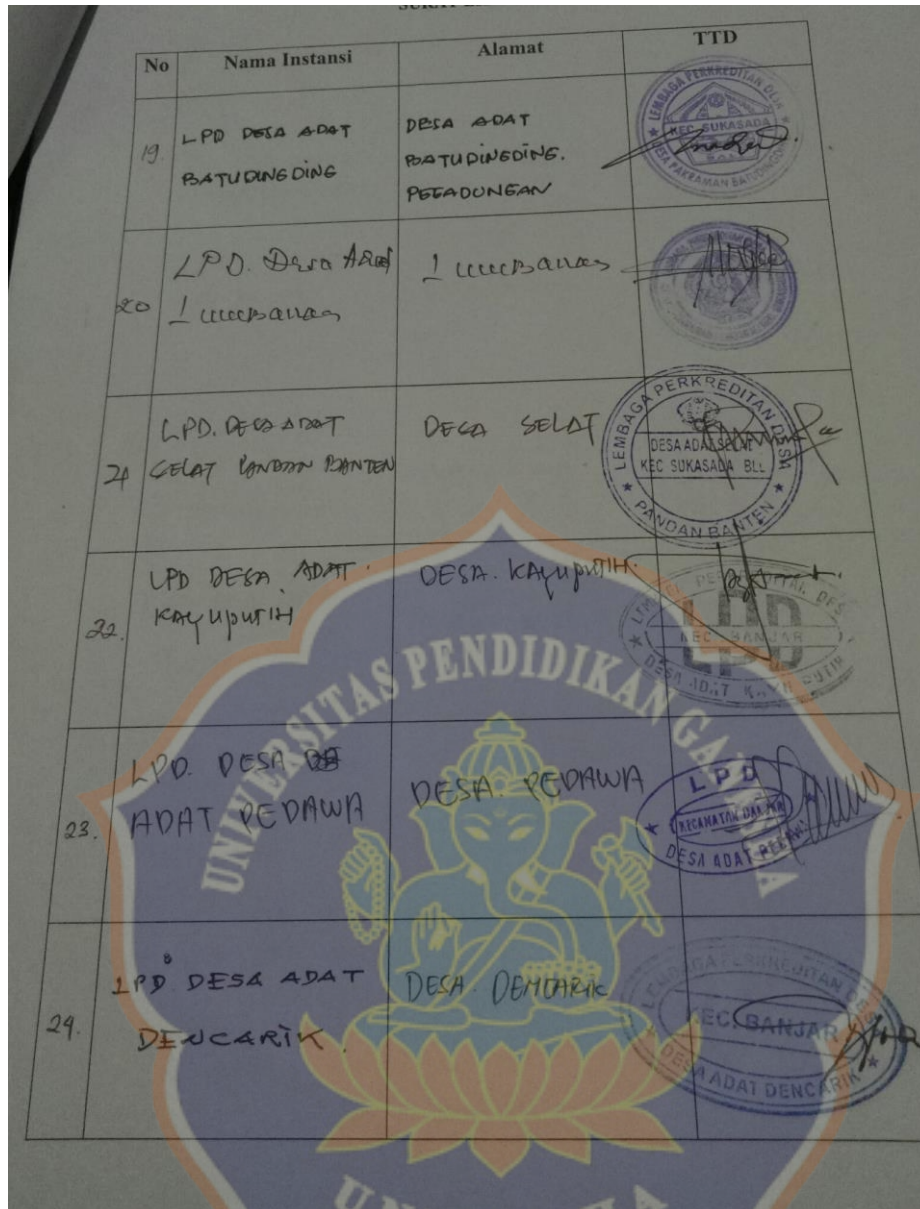 No Nama Instansi Alamat TTD
19. LPD DESA ADAT BATUDINGDING DESA ADAT BATUDINGDING. PEGADUNGAN
LEMBAGA PERKREDITAN DESA
KEC SUKASADA
DESA PAKRAMAN
20 LPD. Desa Adat
21 LPD. DESA ADAT SELAT PANDAN BANTEN DESA SELAT
LEMBAGA PERKREDITAN DESA
DESA ADAT SELAT
KEC SUKASADA BLL
PANDAN BANTEN
22. LPD DESA ADAT. KAYUPUTIH DESA. KAYUPUTIH.
LPD
KEC. BANJAR
DESA ADAT KAYU PUTIH
23. LPD. DESA ADAT PEDAWA DESA. PEDAWA
LPD
KECAMATAN BANJAR
DESA ADAT PEDAWA
24. LPD DESA ADAT DENCARIK DESA. DENCARIK
LEMBAGA PERKREDITAN
KEC. BANJAR
DESA ADAT DENCARIK
UNIVERSITAS PENDIDIKAN GANESHA